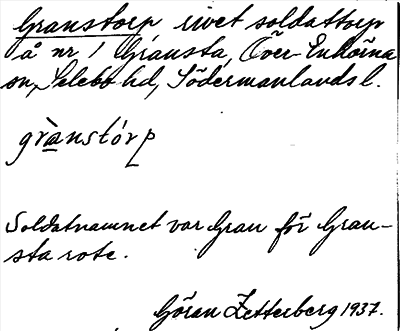 Granstorp rivet soldattorp
å nr 1 Gransta, Över-Enhörna
sn, Selebo hd, Södermanlands l.
grànstórp
Soldatnamnet var Gran för Gran-
sta rote.
Göran Zetterberg 1937.